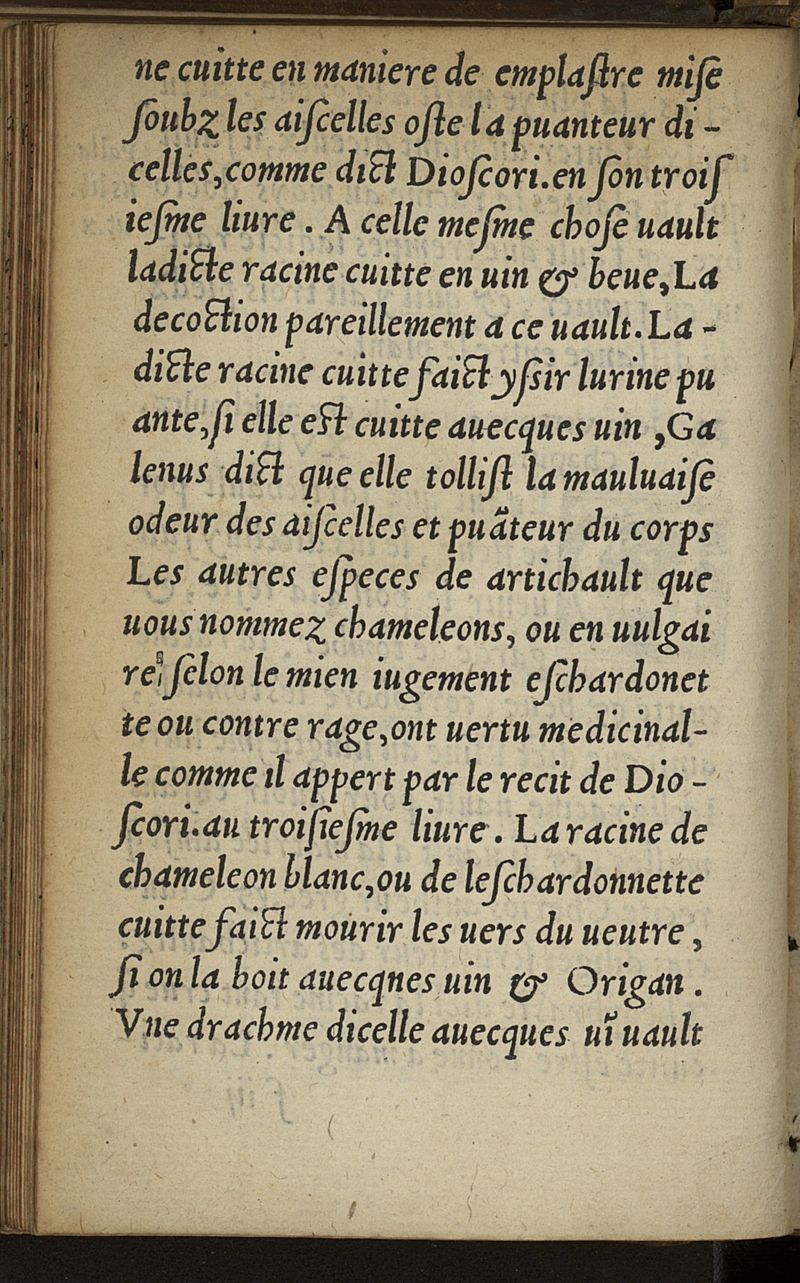 ne cuitte en maniere de emplaſtre miſe
ſoubz les aiſcelles oſte la puanteur di -
celles,comme dict Dioſcori.en ſon troiſ
ieſme liure . A celle meſme choſe uault
ladicte racine cuitte en uin & beue,La
decoction pareillement a ce uault.La -
dicte racine cuitte faict yſsir lurine pu
ante,ſi elle eſt cuitte auecques uin ,Ga
lenus dict que elle tolliſt la mauluaiſe
odeur des aiſcelles et puãteur du corps
Les autres eſpeces de artichault que
uous nommez chameleons, ou en uulgai
re, ſelon le mien iugement eſchardonet
te ou contre rage,ont uertu medicinal-
le comme il appert par le recit de Dio -
ſcori.au troiſieſme liure . La racine de
chameleon blanc,ou de leſchardonnette
cuitte faict mourir les uers du ueutre ,
ſi on la boit auecqnes uin & Origan .
Vne drachme dicelle auecques uĩ uault